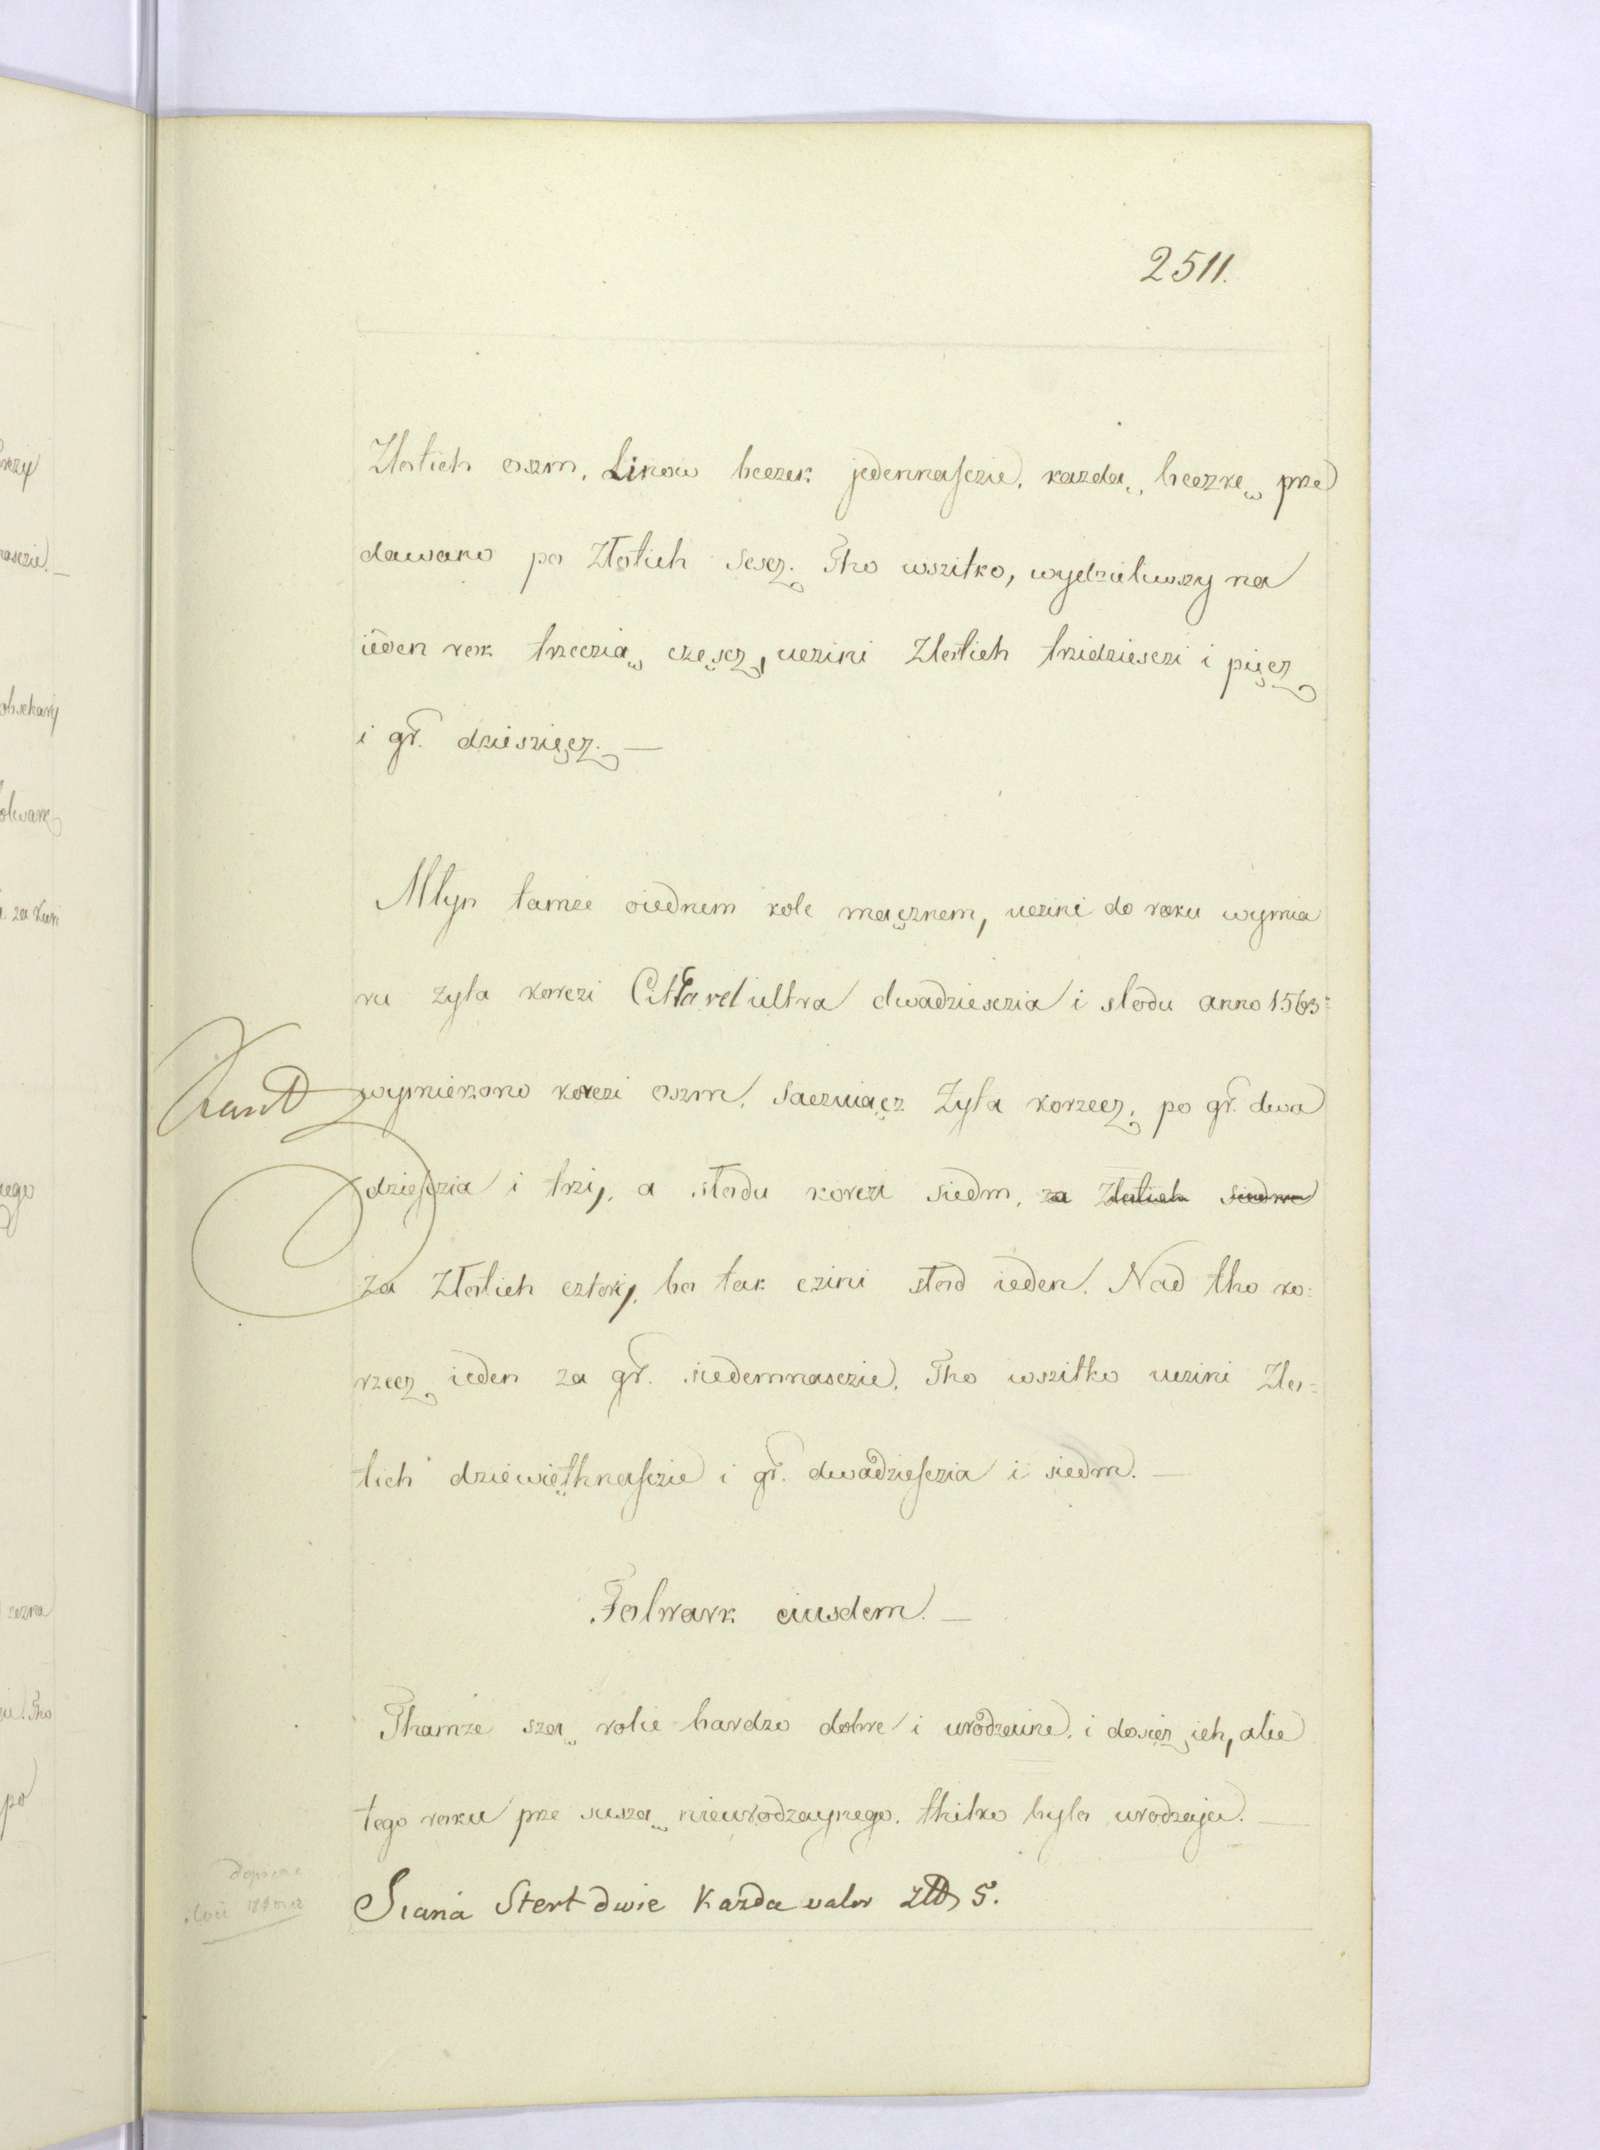 2511.
Złotich oszm. Linow beczek jedennasczie, kazdą beczkę prze
dawano po Złotich sescz. Tho wszitko, wydzieliwszy na
ieden rok trzeczią częscz, uczini Złotich trzidziesczi i pięcz
i gr. dzieszięcz. —
Młyn tamże oiednem kole mącznem, uczini do roku wymia
ru zyta korczi Citra vel ultra dwadziesczia i słodu anno 1563
wymierzono korczi oszm. Saczuiącz Zyta korzecz, po gr. dwa
dziesczia i trzi, a słodu korczi siedm, za Złotich siedm
za Złotich cztori, bo tak czini słod ieden. Nad tho ko:
rzecz ieden za gr. siedemnasczie. Tho wszitko uczini Zło=
tich dziewięthnasczie i gr. dwadziesczia i siedm. —
Folwark eiusdem. —
Thamze szą rolie bardzo dobre i urodzaine, i dosicz ich, alie
tego roku prze suszą nieurodzaynego, thilko było urodzaju. —
Siana Stert dwie Kazda valor zł 5.